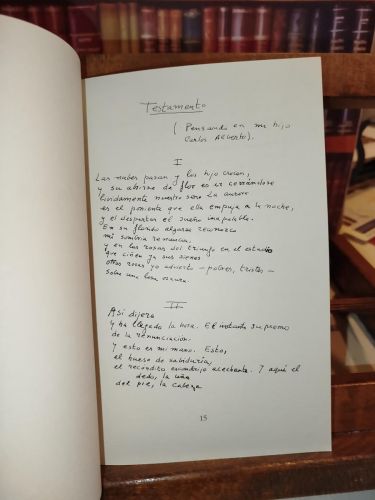 Testamento
(Pensando en mi hijo
Carlos Alberto).
I
Las nubes pasan y los hijos crecen,
y su abrirse de flor es ir cerrándose
lívidamente nuestro sera La aurora
es el poniente que ella empuja a la noche,
y el despertar el sueño inapelable.
En su florido algazara reconozco
mi sombría renuncia,
y en las rosas del triunfo en el estadio
que ciñen ya sus sienes
otras rosas yo advierto - pobres, tristes -
sobre una losa oscura.
II
Así dijera
y ha llegado la hora. El instante supremo
de la renunciación.
y esto es mi mano. Esto,
el hueso de sabiduría,
el recóndito escondrijo acechante. Y aquí el
dedo, la uña
del pie, la cabeza
15